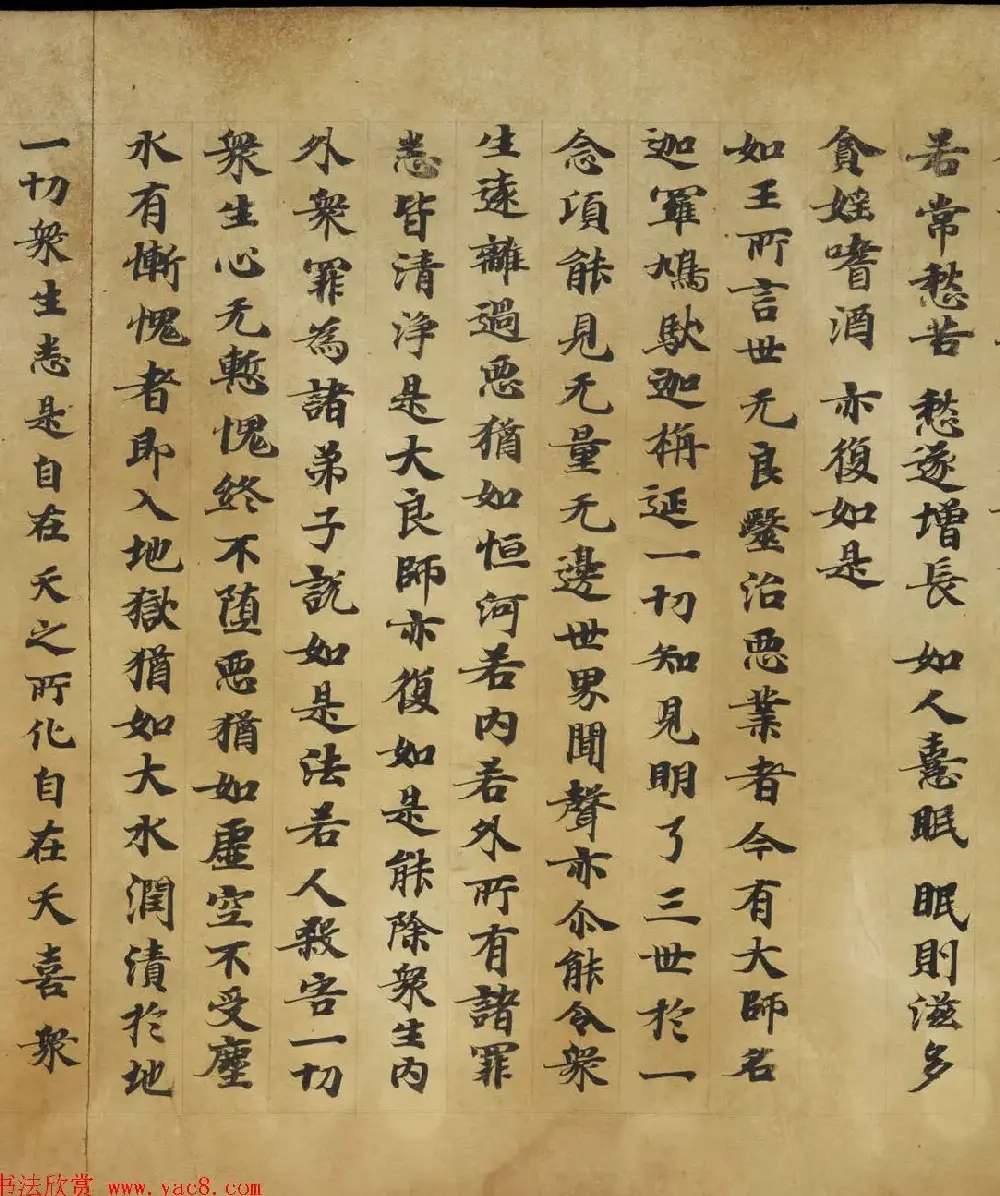 若常愁苦 愁遂增長 如人憙眠 眠則滋多
貪婬嗜酒 亦復如是
如王所言世无良毉治惡業者今有大師名
迦羅鳩馱迦栴延一切知見明了三世於一
念項能見无量无邊世界聞聲亦尒能令衆
生遠離過惡猶如恒河若内若外所有諸罪
悉皆清淨是大良師亦復如是能除衆生内
外衆罪為諸弟子說如是法若人殺害一切
衆生心无慙愧終不堕惡猶如虛空不受塵
水有慚愧者即入地獄猶如大水潤漬於地
一切衆生悉是自在天之所化自在天喜衆
书法欣赏 www.yac8.com